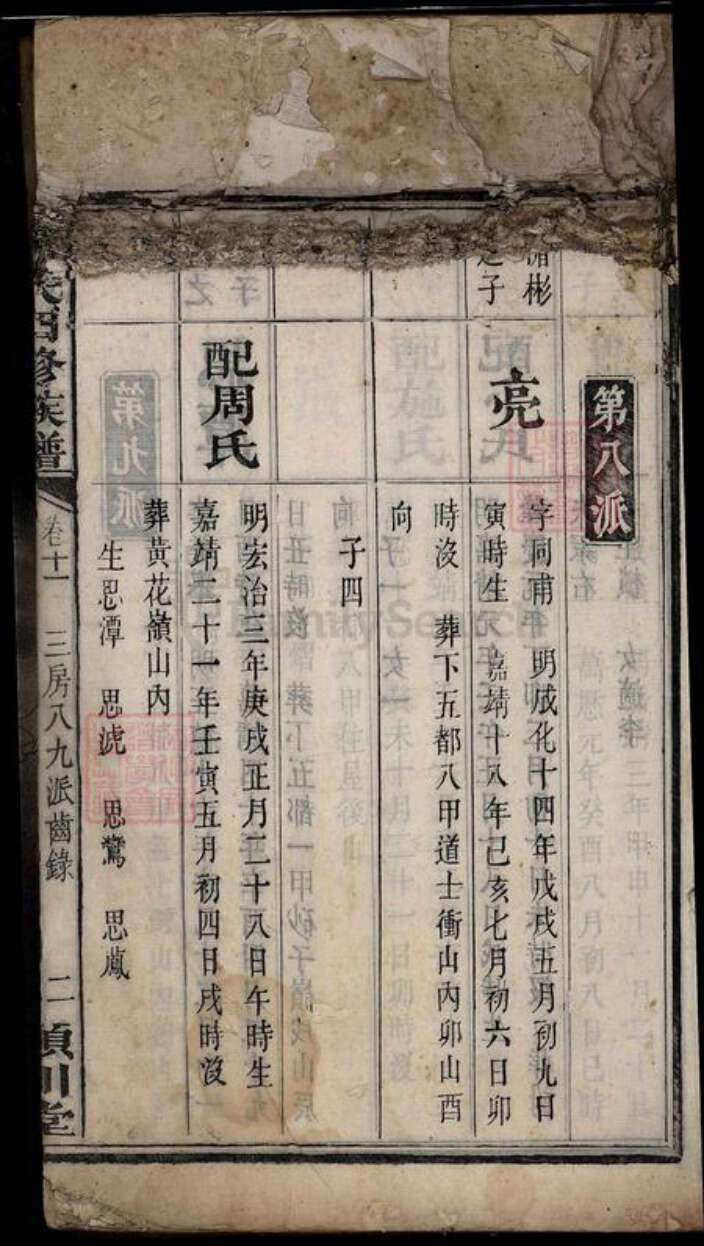 第八派
彬
之子
亮
字同甫 明成化十四年戊戌五月初九日
寅時生 嘉靖十八年己亥七月初六日卯
時沒 葬下五都八甲道士衝山內卯山酉
向
子四
配周氏
明宏治三年庚戌正月二十八日午時生
嘉靖二十一年壬寅五月初四日戌時沒
葬黃花嶺山內
生思潭 思淲 思鸞 思鳳
氏四修族譜
卷十一 三房八九派齒錄 二 潁川堂
FamilySearch